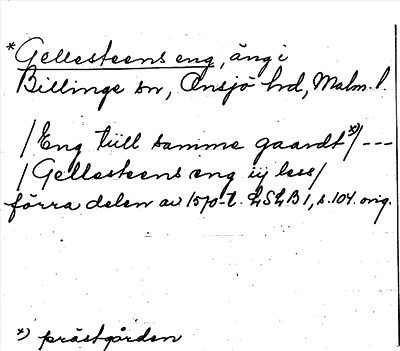 *Gellesteens eng, äng i
Billinge sn, Onsjö hd, Malm. l.
/Eng tüll samme gaardt*)/ ---
/Gellesteens eng iij less/
förra delen av 1570-t. LSLB 1, s. 104. orig.
*) prästgården